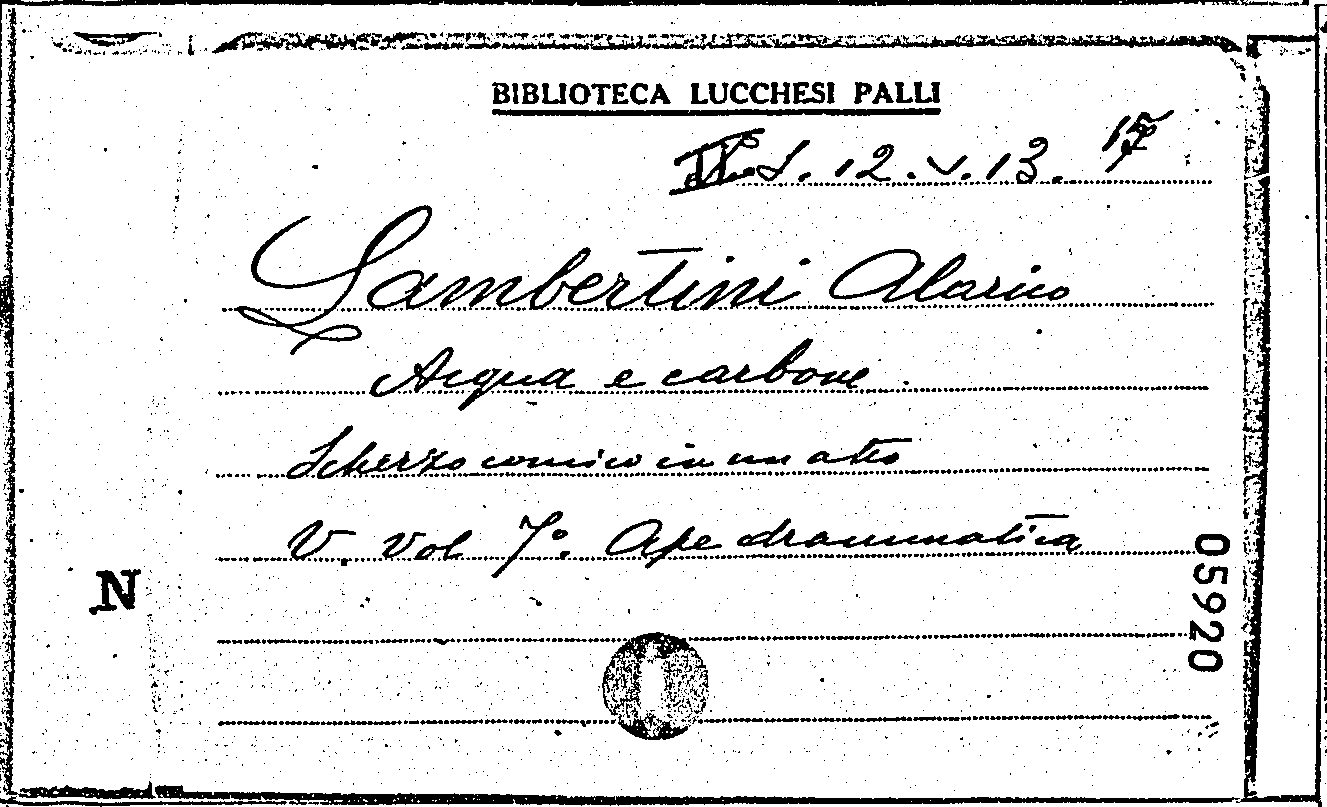 BIBLIOTECA LUCCHESI PALLI
S. 12. V. 13. 17
Lambertini Alarico
Acqua e carbone.
Scherzo comico in un atto
V. Vol 7º. Ape drammatica
N
05920